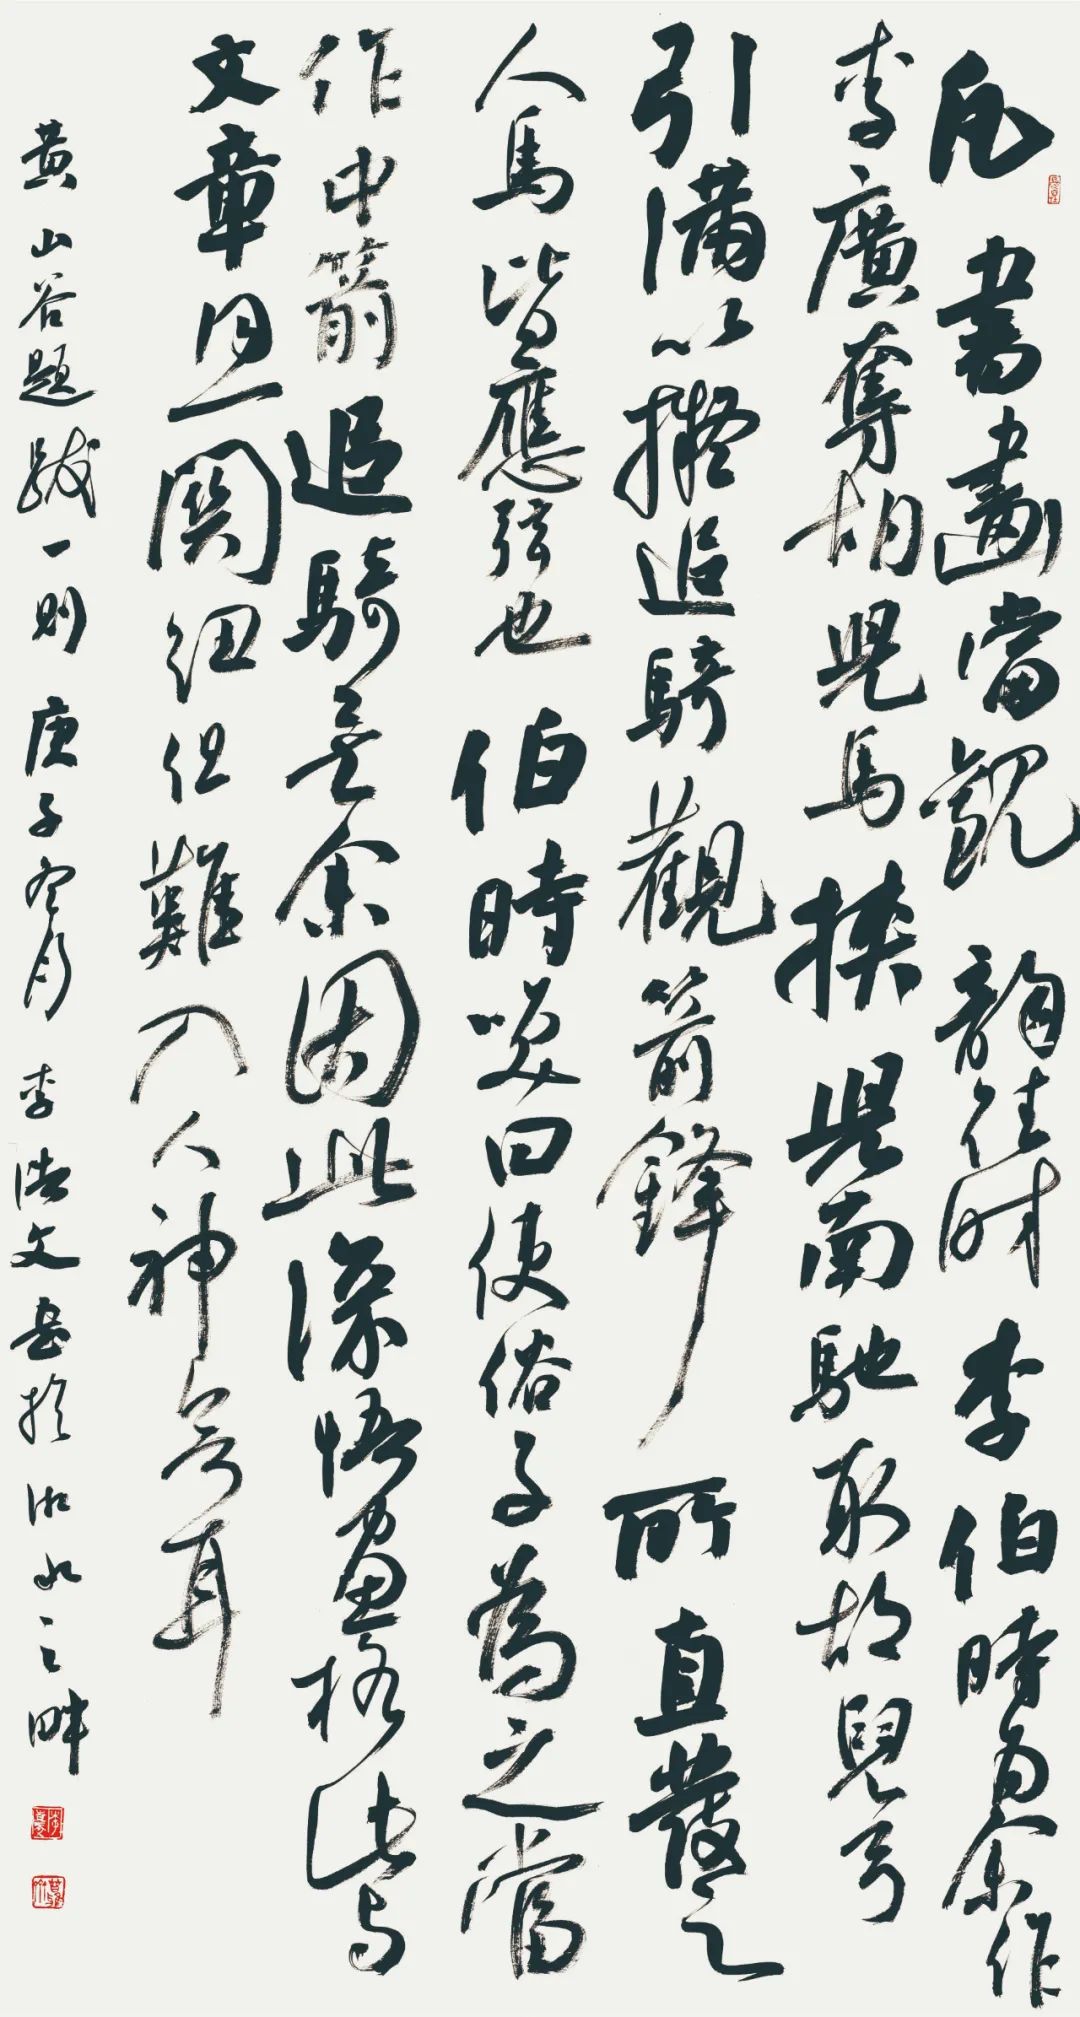 凡書畫當觀韻往時李伯時為余作
李廣奪胡兒馬挾兒南馳取胡兒弓
引滿以擬追騎觀箭鋒所直發之
人馬皆應弦也伯時笑曰使俗子為之當
作中箭追騎矣余因此深悟畫格此與
文章同一關紐但難入人神會耳
黃山谷題跋一則庚子冬月李浩文書於湘水之畔